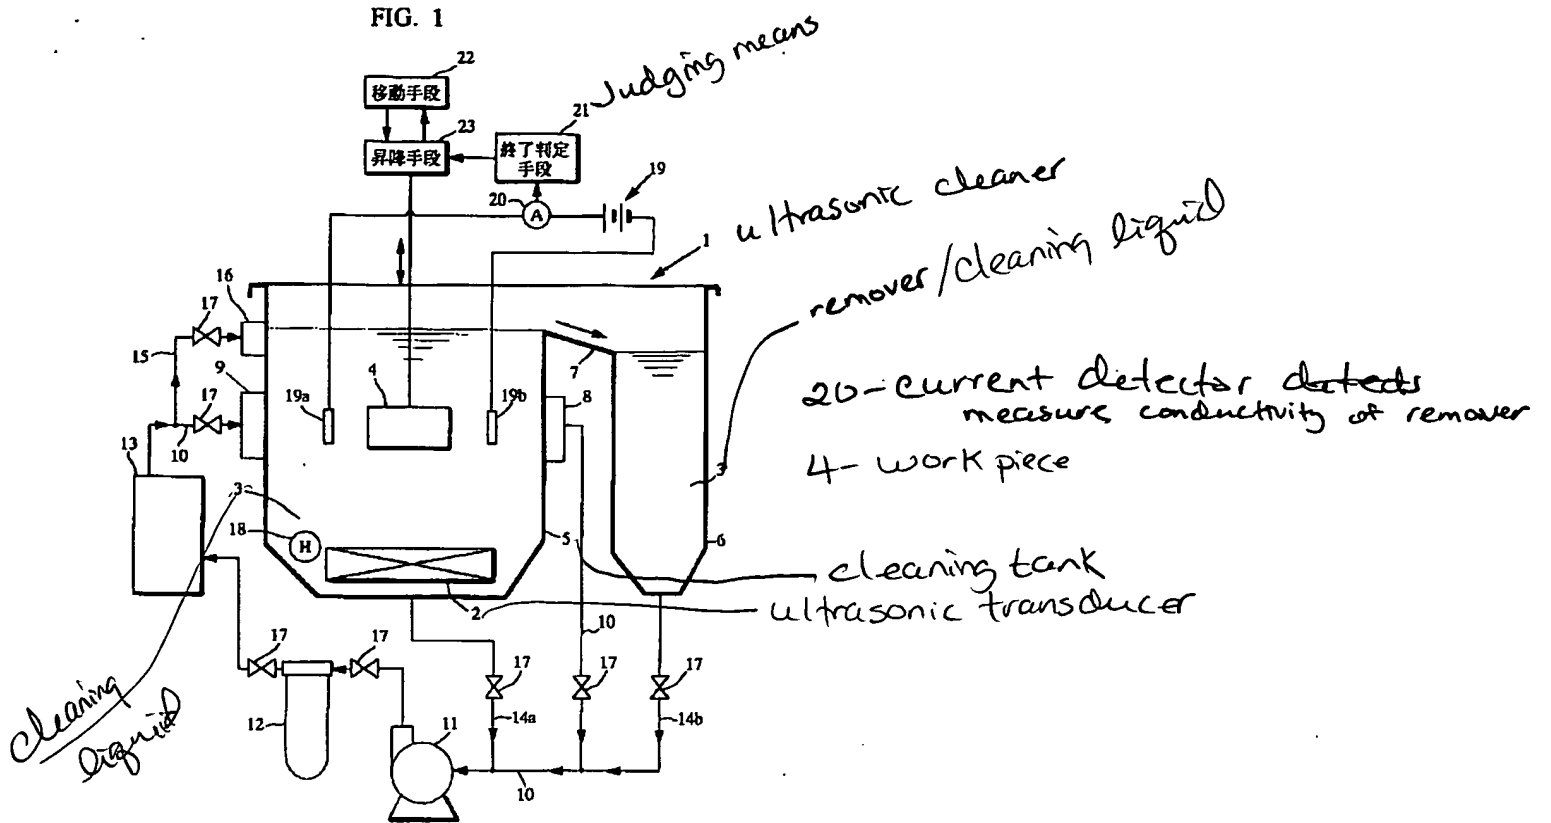 FIG. 1
22
移動手段
23
昇降手段
21
終了判定
手段
Judging means
20
A
19
1
ultrasonic cleaner
remover/cleaning liquid
16
17
15
9
17
10
13
19a
4
19b
7
8
20-current detector detects
measure conductivity of remover
4- workpiece
3
3
18
H
5
6
cleaning tank
2
ultrasonic transducer
10
17
17
17
17
17
cleaning
liquid
12
11
14a
14b
10